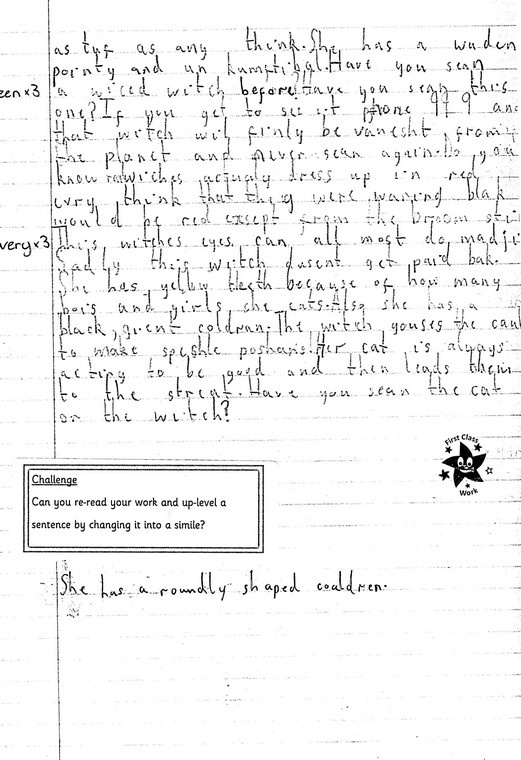 as tuf as any think. She has a wuden
pointy and un kumftibal. Have you sean
a wiced witch before? Have you sean this
een x3
one? If you get to see it phone 999 and
that witch wil finly be vanesht, from
the planet and never sean again. Do you
know witches actualy dress up in red
evry think that they were waring blak
would be red except from the broom stic
very x3
This witches eyes can all most do madjic
Sadly this witch dusent get paid bak.
She has yellow teeth because of how many
bois and girls she eats. Also she has a
black, grent coldran. The witch youses the caul
to make speshle poshans. Her cat is always
acting to be good and then leads them
to the streat. Have you sean the cat
or the witch?
First Class
Work
Challenge
Can you re-read your work and up-level a
sentence by changing it into a simile?
She has a roundly shaped cauldren.